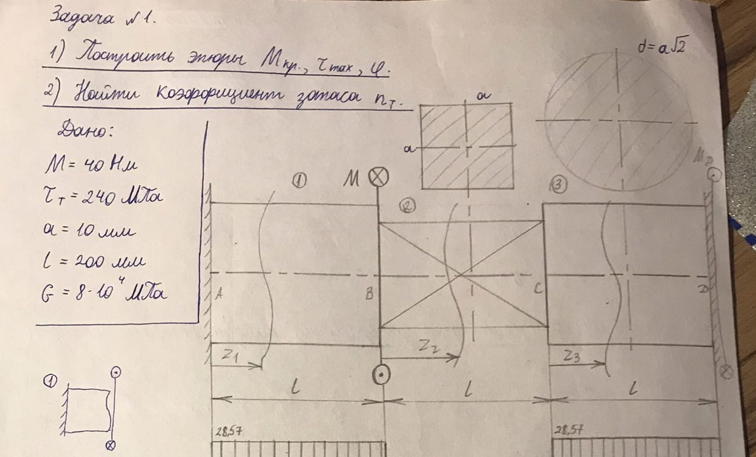 Задача №1.
1) Построить эпюры Mкр., τmax, φ.
2) Найти коэффициент запаса nт.
Дано:
M = 40 Нм
τт = 240 МПа
a = 10 мм
l = 200 мм
G = 8·10⁴ МПа
d = a√2
a
a
① M ② ③
A B C D
z1 z2 z3
l l l
①
28,57 28,57